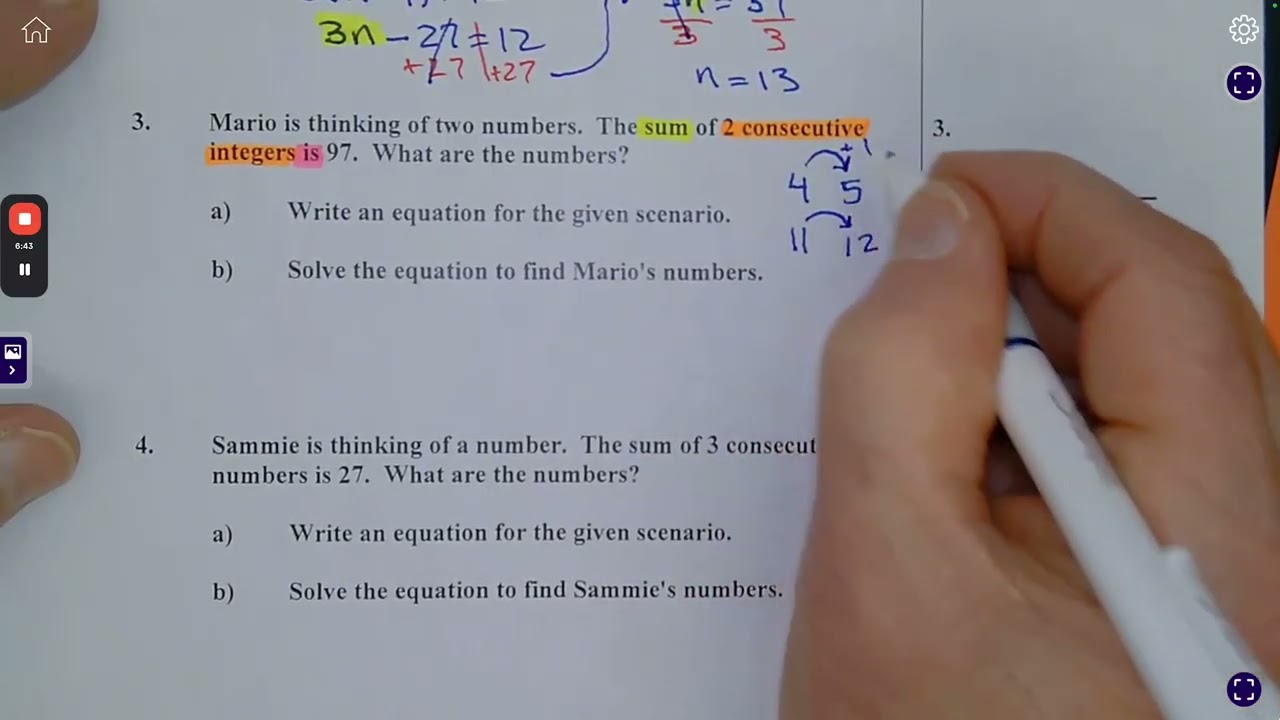 3n - 27 = 12
+27 +27
3 3
n = 13
3. Mario is thinking of two numbers. The sum of 2 consecutive 3.
integers is 97. What are the numbers?
+1
4 5
a) Write an equation for the given scenario.
11 12
b) Solve the equation to find Mario's numbers.
6:43
4. Sammie is thinking of a number. The sum of 3 consecut
numbers is 27. What are the numbers?
a) Write an equation for the given scenario.
b) Solve the equation to find Sammie's numbers.